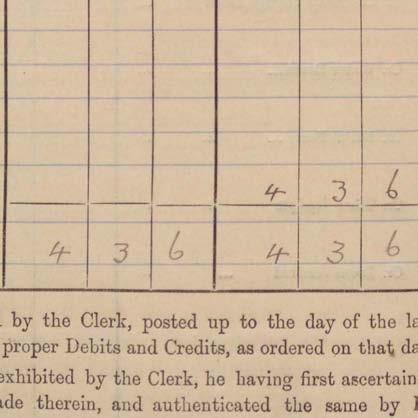 4 3 6
4 3 6 4 3 6
by the Clerk, posted up to the day of the
proper Debits and Credits, as ordered on that
exhibited by the Clerk, he having first
therein, and authenticated the same by